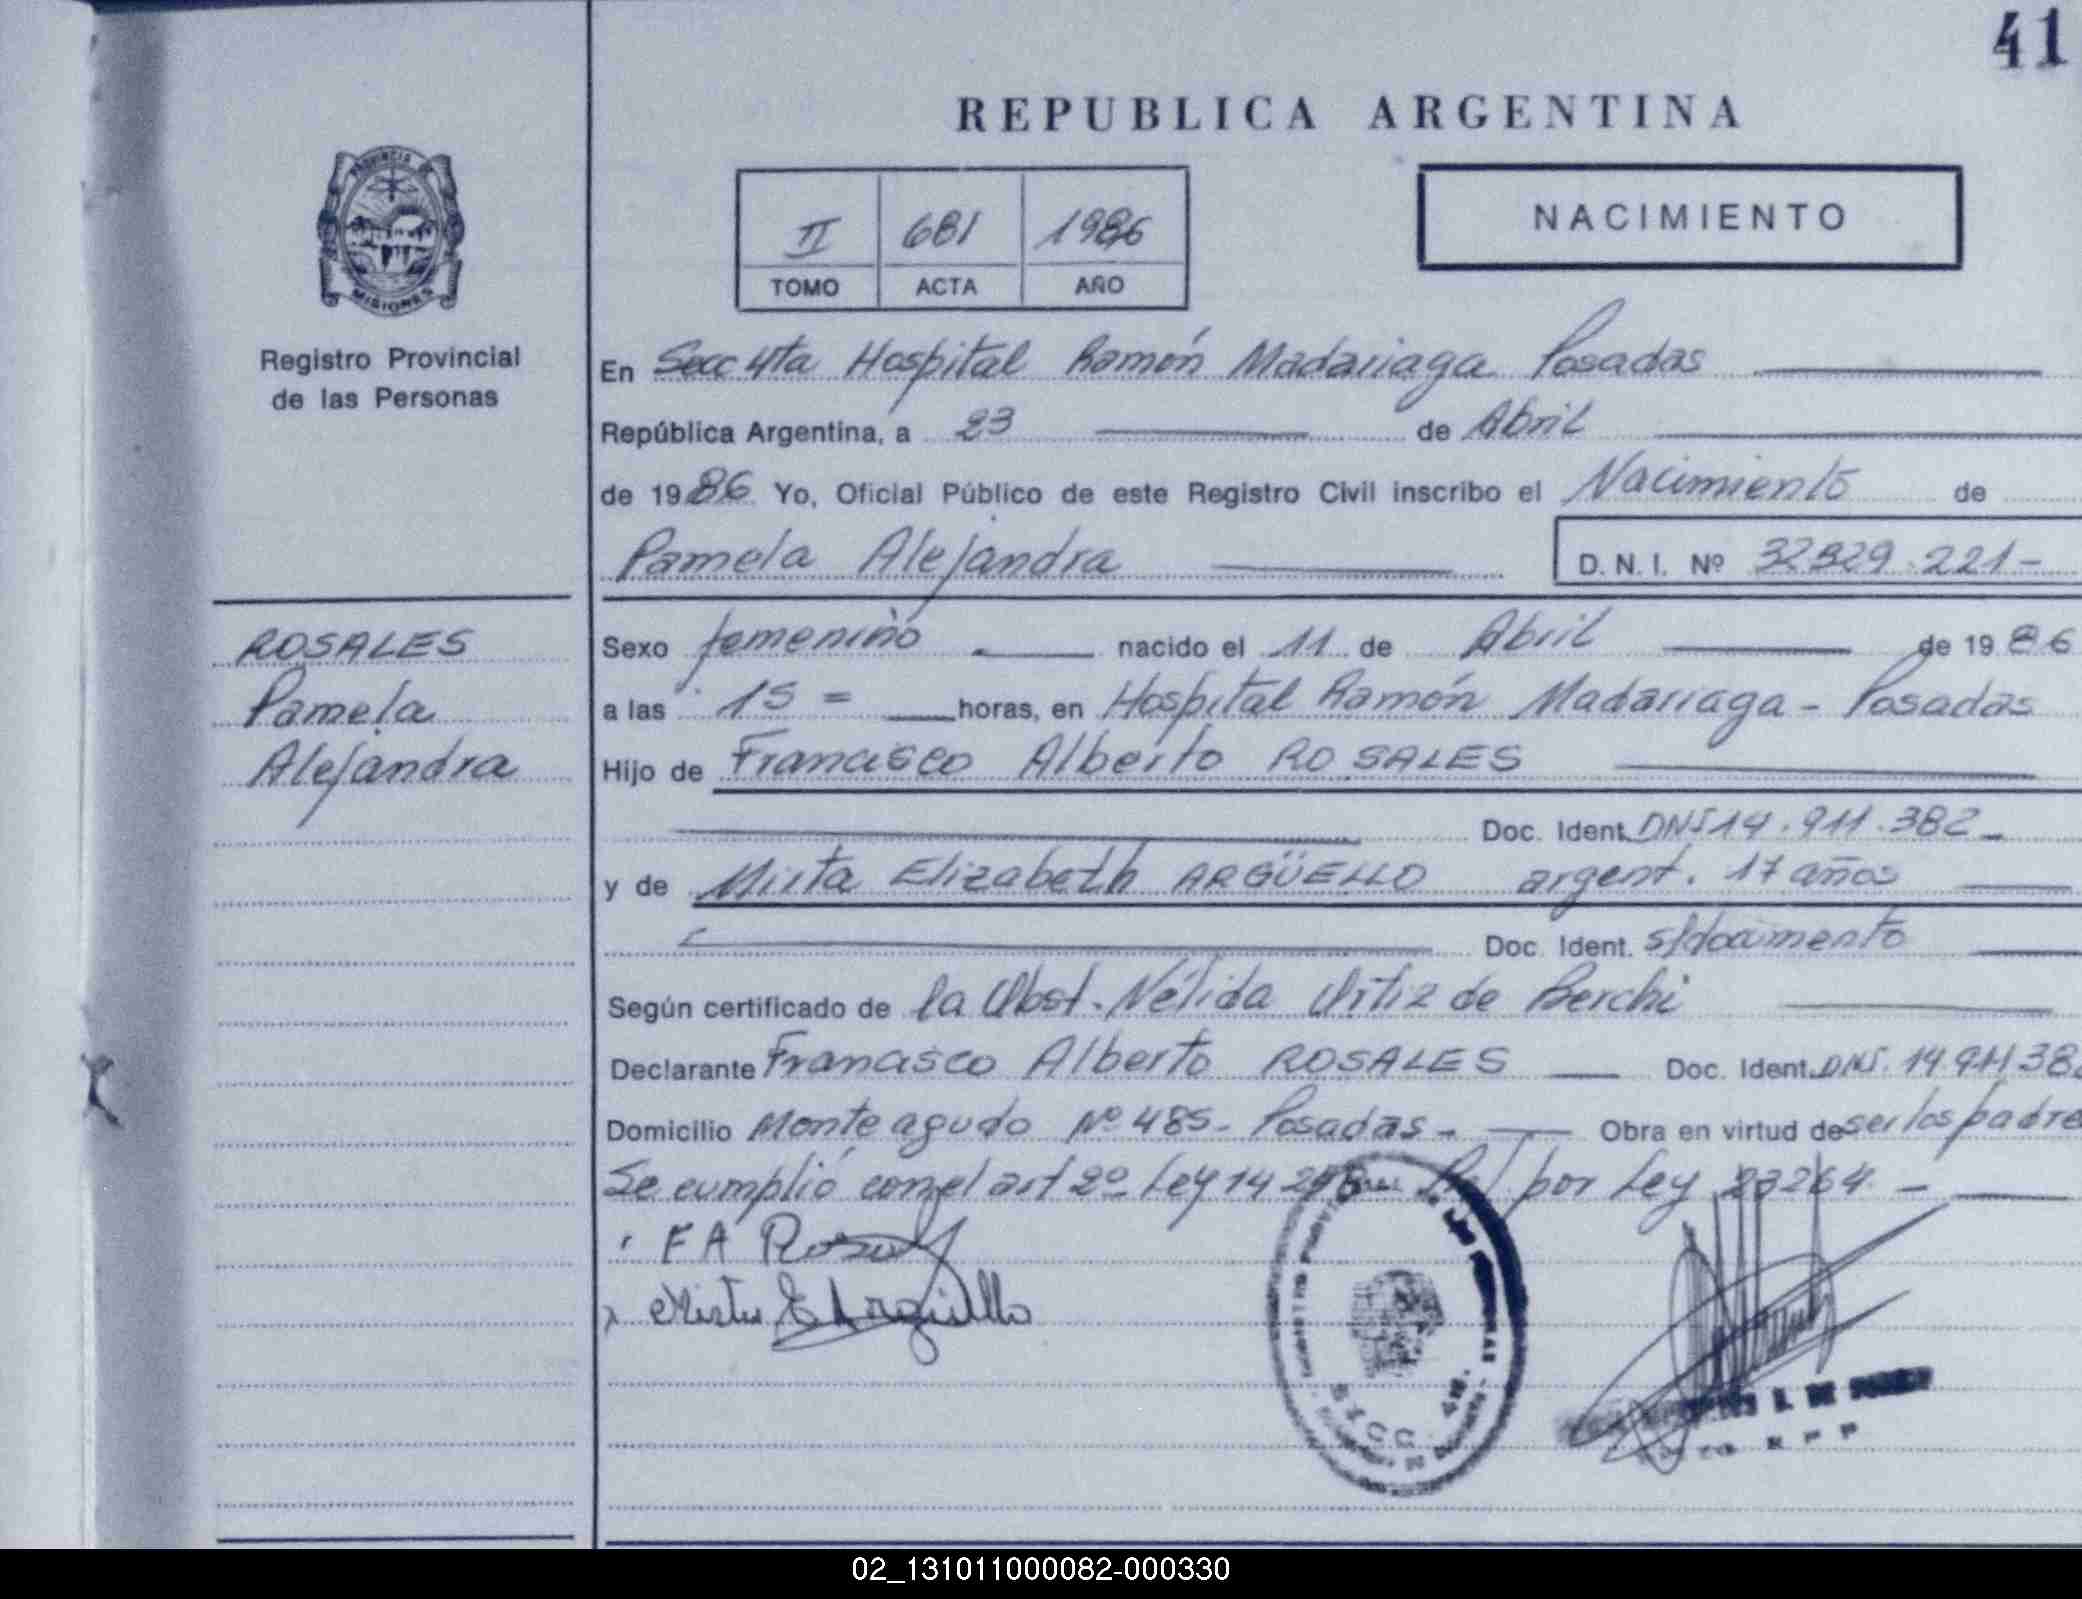 41
REPUBLICA ARGENTINA
PROVINCIA DE MISIONES
II 681 1986
TOMO ACTA AÑO
NACIMIENTO
Registro Provincial
de las Personas
En Secc 4ta Hospital Ramón Madariaga Posadas
República Argentina, a 23 de Abril
de 1986 Yo, Oficial Público de este Registro Civil inscribo el Nacimiento de
Pamela Alejandra D.N.I. Nº 32329.221-
ROSALES
Pamela
Alejandra
Sexo femenino nacido el 11 de Abril de 1986
a las 15 = horas, en Hospital Ramón Madariaga - Posadas
Hijo de Francisco Alberto ROSALES
Doc. Ident. DNI 14.911.382-
y de Mirta Elizabeth ARGÜELLO argent. 17 años
Doc. Ident. s/documento
Según certificado de la Obst. Nélida Ortiz de Berchi
Declarante Francisco Alberto ROSALES Doc. Ident. DNI. 14 911 38
Domicilio Monteagudo Nº 485- Posadas - Obra en virtud de ser los padre
Se cumplió con el art 2º Ley 14 por Ley 23264 -
F A Rosales
Mirta E Argüello
SECC 4ta.
02_131011000082-000330